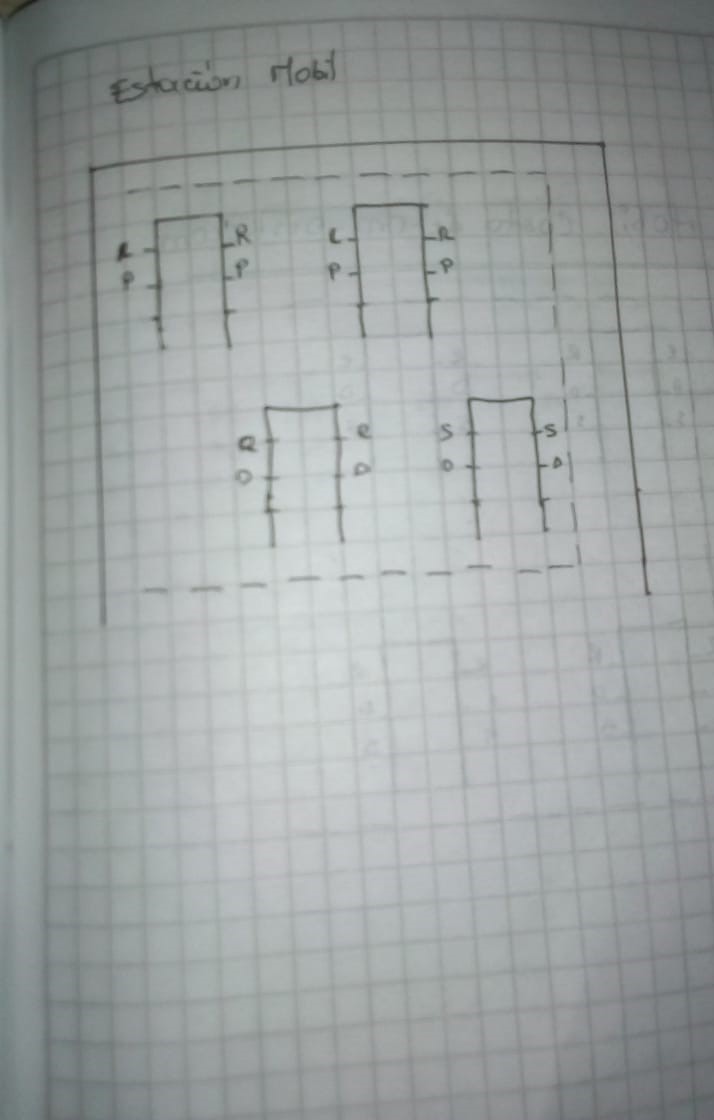 Estación Mobil
R R L R
P P P P
Q Q S S
D D D D